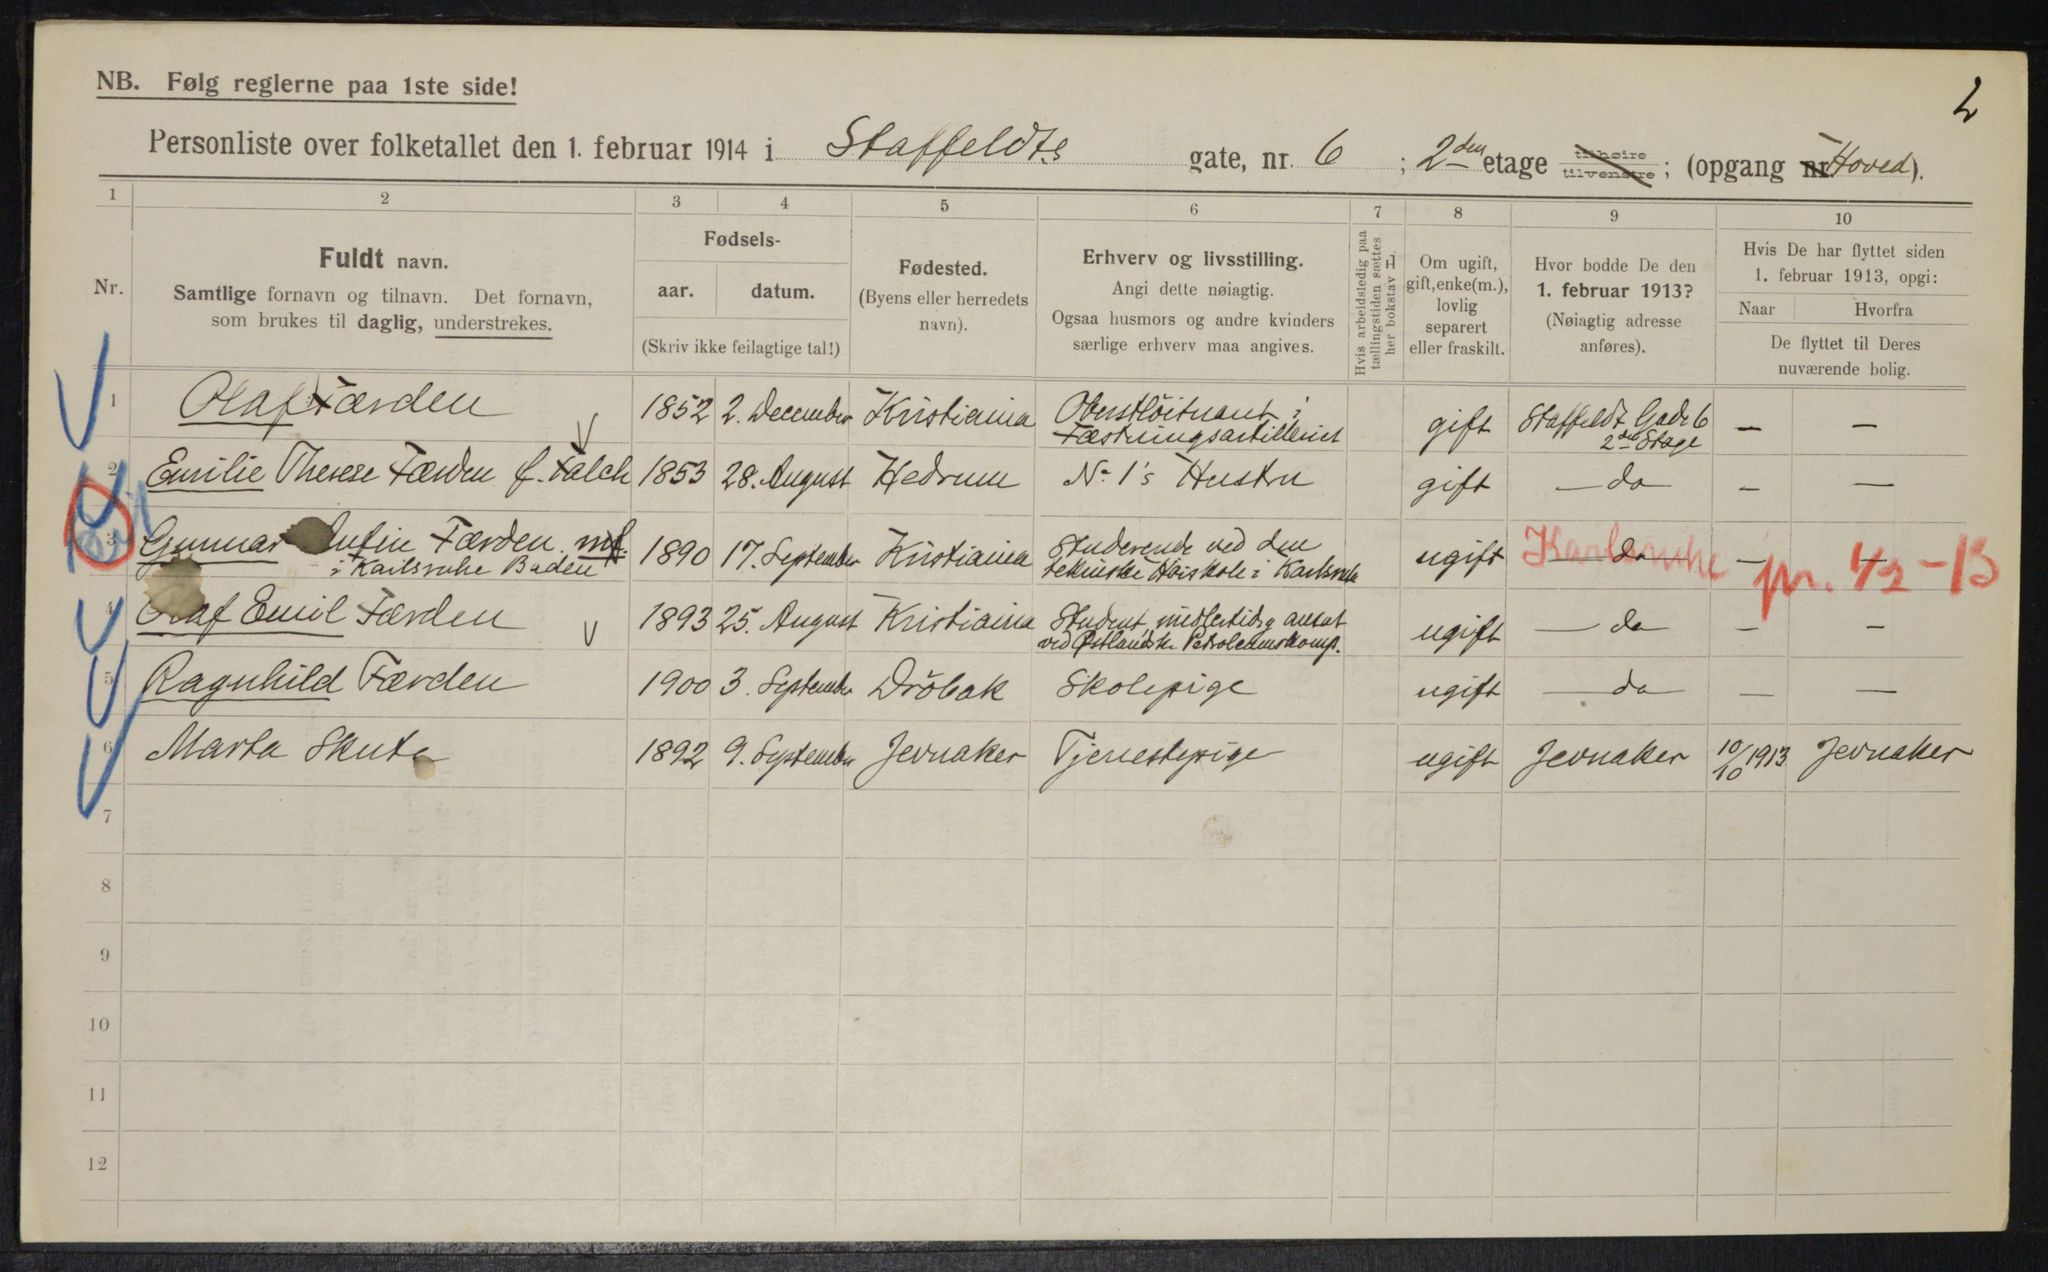 2
NB. Følg reglerne paa 1ste side!
Personliste over folketallet den 1. februar 1914 i Staffeldts gate, nr. 6 ; 2den etage tilhøire tilvenstre ; (opgang nr Hoved).
1 2 3 4 5 6 7 8 9 10
Nr.
Fuldt navn.
Samtlige fornavn og tilnavn. Det fornavn, som brukes til daglig, understrekes.
Fødsels-
aar. datum.
(Skriv ikke feilagtige tal!)
Fødested.
(Byens eller herredets navn).
Erhverv og livsstilling.
Angi dette nøiagtig.
Ogsaa husmors og andre kvinders særlige erhverv maa angives.
Hvis arbeidsledig paa tællingstiden sættes her bokstav L
Om ugift, gift, enke(m.), lovlig separert eller fraskilt.
Hvor bodde De den 1. februar 1913?
(Nøiagtig adresse anføres).
Hvis De har flyttet siden 1. februar 1913, opgi:
Naar Hvorfra
De flyttet til Deres nuværende bolig.
1 Olaf Færden 1852 2. December Kristiania Oberstløitnant i Fæstningsartilleriet gift Staffeldt Gade 6 2den Etage — —
2 Emilie Therese Færden f. Falch 1853 28. August Hedrum No 1's Hustru gift — do — —
3 Gunnar Færden mf. i Karlsruhe Baden 1890 17. September Kristiania Studerende ved den tekniske Høiskole i Karlsruhe ugift — do — — Karlsruhe pr. 1/2 - 13
4 Olaf Emil Færden 1893 25. August Kristiania Student, midlertidig ansat ved Østlandske Petroleumskomp. ugift — do — —
5 Ragnhild Færden 1900 3. September Dröbak Skolepige ugift — do — —
6 Marta Skute 1892 9. September Jevnaker Tjenestepige ugift Jevnaker 10/10 1913 Jevnaker
7
8
9
10
11
12